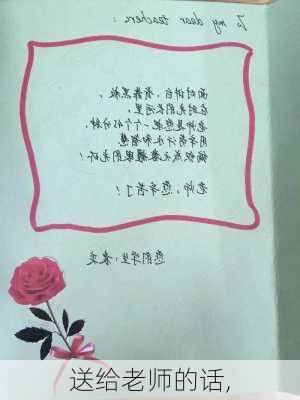 To my dear teacher:
面对讲台,背靠黑板,
在时光的长河里,
老师是您把一个个分钟,
用辛勤汗水和智慧
织成无数果的光环!
老师,您辛苦了!
您的学生:
送给老师的话,